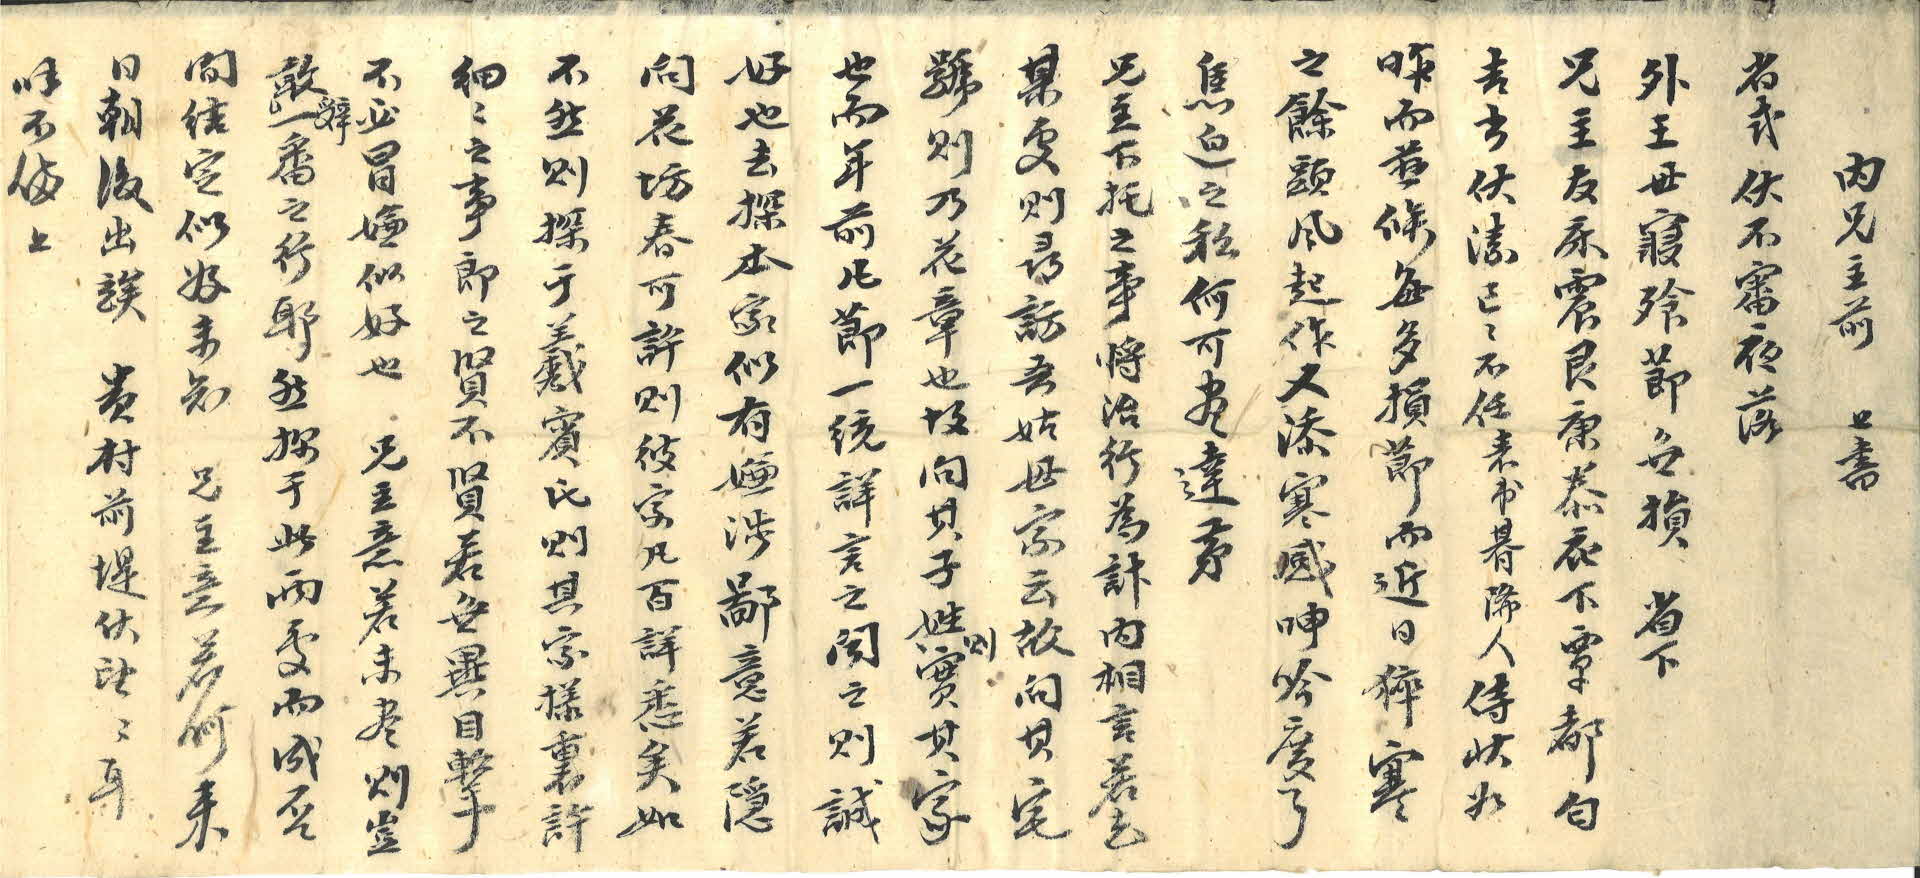 內兄主前 上書
省式伏不審夜落
外王母寢飱節無損 省下
兄主友床震艮康泰衙下覃都勻
吉吉伏溸區區不任表弟朞降人侍狀如
昨而慈候每多損節而近日猝寒
之餘頭風起作又添寒感呻吟度了
焦迫之私何可盡達第
兄主下托之事將治行爲計內相言若去
某處則尋訪吾姑母家云故問其宅
號則乃花章也故問其子姓則實其家
也而年前凡節一統詳言之聞之則誠
好也去探本家似有嫌涉鄙意若隱
問花坊春可許則彼家凡百詳悉矣如
不然則探于義賓氏則其家樣裏許
細細之事郎之賢不賢若無異目擊
不必冒嫌似好也 兄主意若未盡則豈
敢辭一番之行耶然探于此兩處而成否
間結定似好未知 兄主意若何來
日朝後出謨 貴村前堤伏企企耳
餘不備上